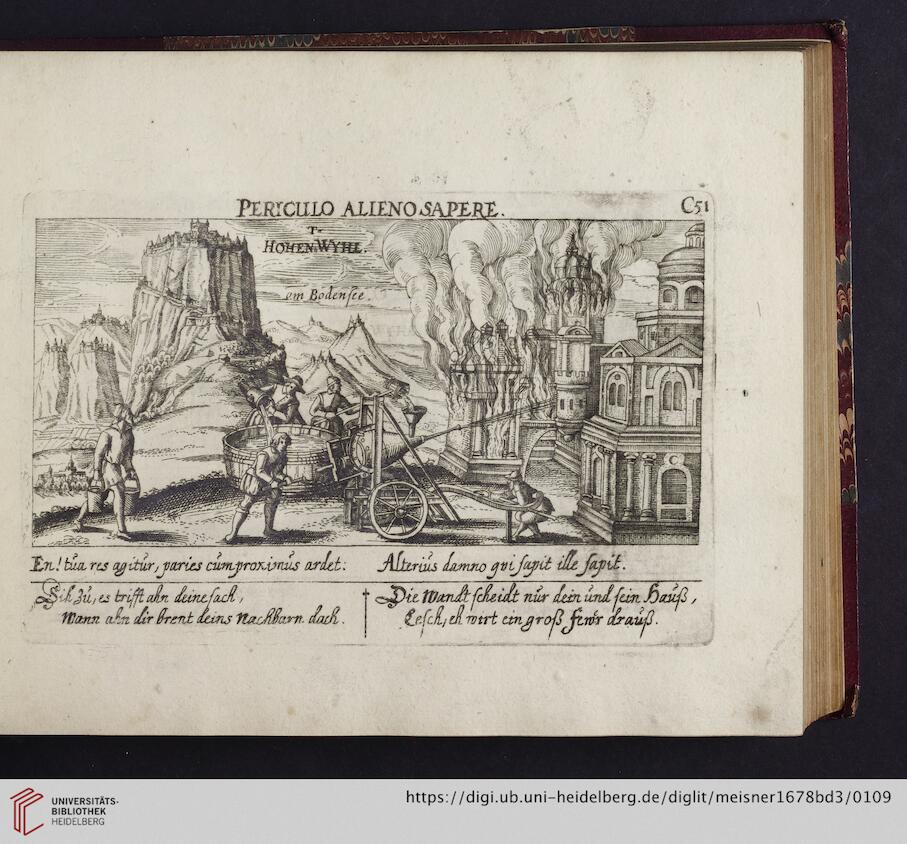 PERICULO ALIENO SAPERE.
C51
HOHENWYHL.
am Bodensee.
En! tua res agitur, paries cum proximus ardet:
Alterius damno qvi sapit ille sapit.
Sih zu, es trifft ahn deine sach,
Wann ahn dir brent deins Nachbarn dach.
Die Wandt scheidt nur dein und sein Hauß,
Lesch, eh wirt ein groß fewr drauß.
UNIVERSITÄTS-
BIBLIOTHEK
HEIDELBERG
https://digi.ub.uni-heidelberg.de/diglit/meisner1678bd3/0109